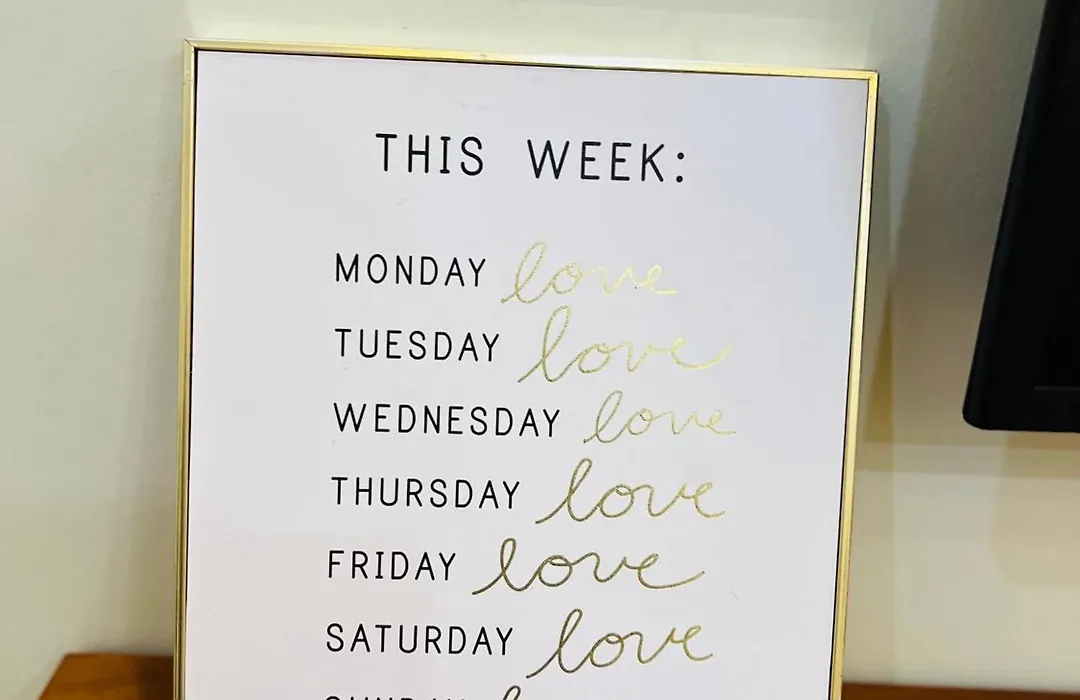 THIS WEEK:
MONDAY love
TUESDAY love
WEDNESDAY love
THURSDAY love
FRIDAY love
SATURDAY love